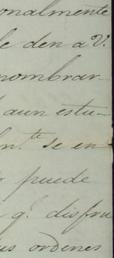 onalmente
le den a V.
nombrar
aun estu-
te se en
puede
q.e disfru
us ordenes